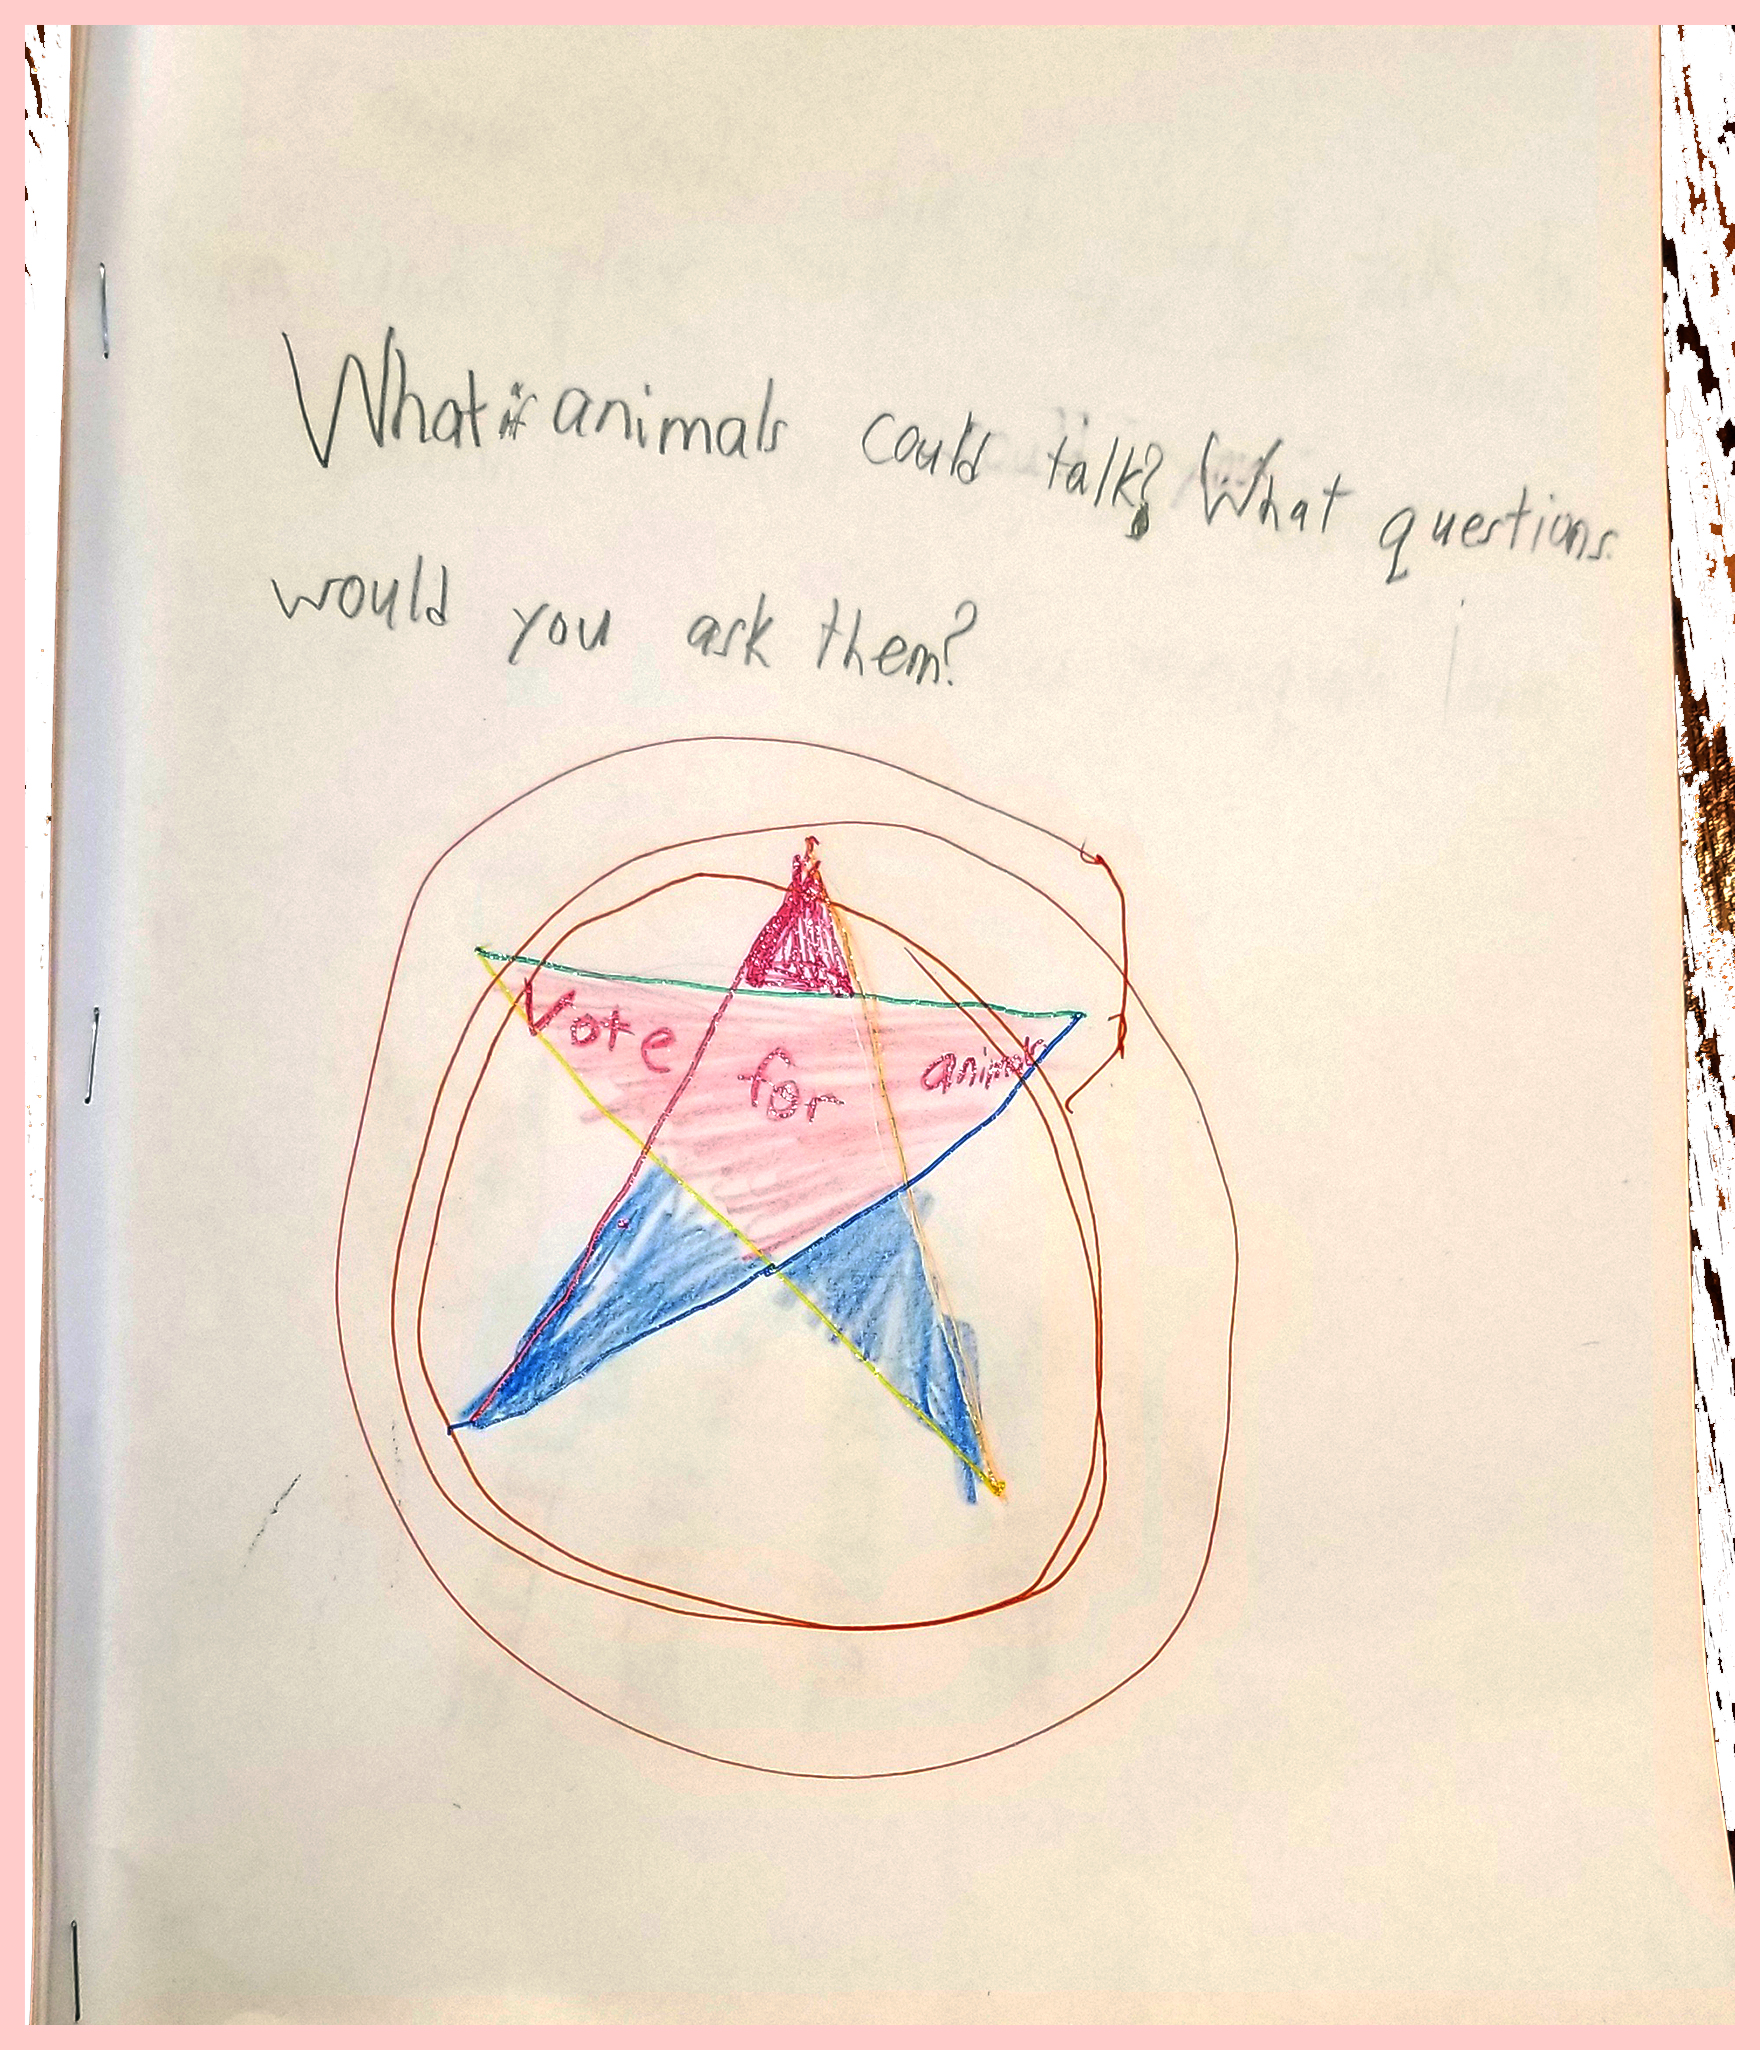 What if animals could talk? What questions
would you ask them?
Vote for animals